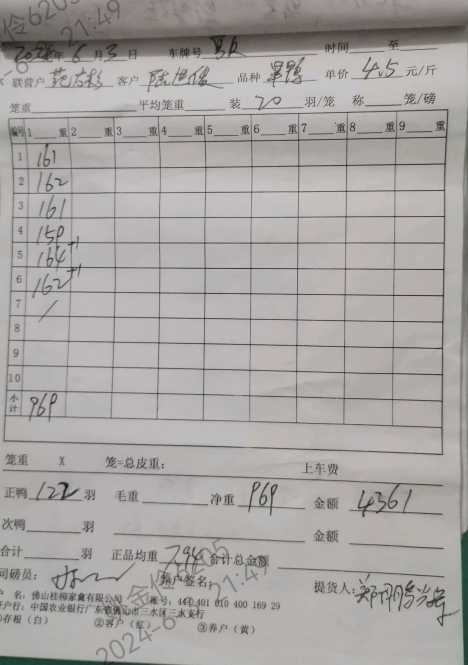 2024年6月3日 车牌号 时间 至
联营户 客户 品种 单价 4.5 元/斤
笼重 平均笼重 装 20 羽/笼 称 笼/磅
编号 1 重 2 重 3 重 4 重 5 重 6 重 7 重 8 重 9 重
1 161
2 162
3 161
4 159
5 164 +1
6 162 +1
7 /
8
9
10
小计 969
笼重 X 笼=总皮重: 上车费
正鸭 122 羽 毛重 净重 969 金额 4361
次鸭 羽 金额
合计 羽 正品均重 7.94 合计总金额
司磅员: 客户签名: 提货人:
户 名: 佛山桂柳家禽有限公司 账号: 440 491 010 400 169 29
开户行: 中国农业银行广东省佛山市三水区三水支行
①存根（白） ②客户（红） ③养户（黄）
2024-6- 21:49